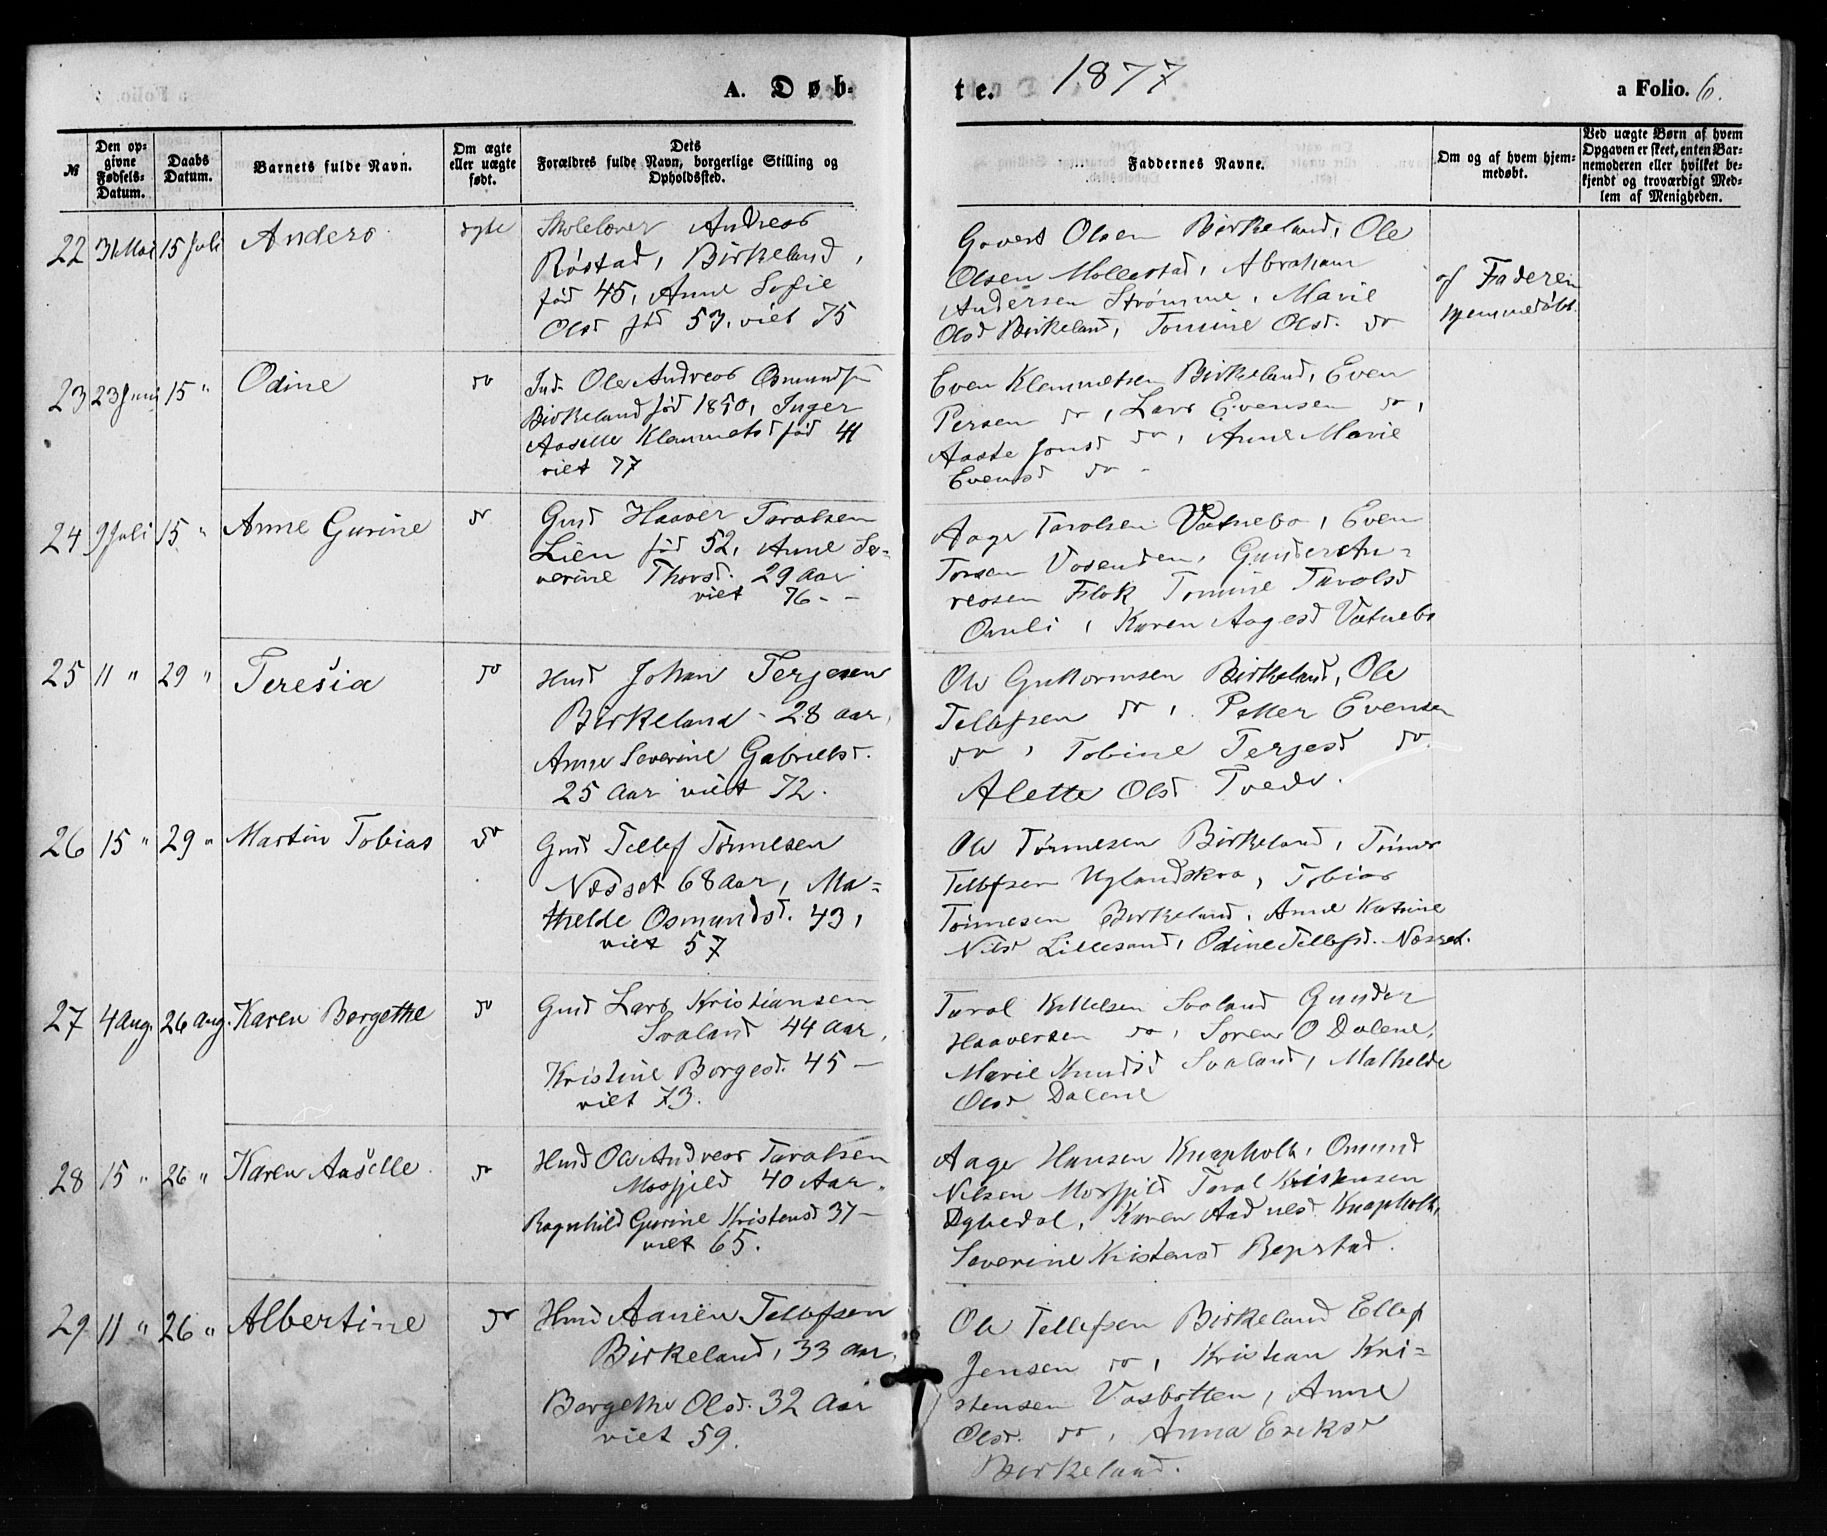 A. Døb-
te. 1877
a Folio. 6.
№
Den op-
givne
Fødsels-
Datum.
Daabs
Datum.
Barnets fulde Navn.
Om ægte
eller uægte
født.
Dets
Forældres fulde Navn, borgerlige Stilling og
Opholdssted.
Faddernes Navne.
Om og af hvem hjem-
medøbt.
Ved uægte Børn af hvem
Opgaven er skeet, enten Bar-
nemoderen eller hvilket be-
kjendt og troværdigt Med-
lem af Menigheden.
22 31 Mai 15 Juli Anders ægte
Skolelærer Andreas
Røstad, Birkeland,
fød 45, Anne Sofie
Olsd fød 53, viet 75
Govert Olsen Birkeland, Ole
Olsen Mollestad, Abraham
Andersen Strømme, Marie
Olsd Birkeland, Tomine Olsd. do
af Faderen
hjemmedøbt.
23 23 Juni 15 " Odine do
Ind. Ole Andreas Osmundsen
Birkeland fød 1850, Inger
Aaselle Klemmetsd fød 41
viet 77
Even Klemmetsen Birkeland, Even
Persen do, Lars Evensen do,
Aaste Jonsd do, Anne Marie
Evensd do -
24 9 Juli 15 " Anne Gurine do
Gmd Haaver Taralsen
Lien fød 52, Anne Se-
verine Thorsd. 29 Aar
viet 76 - -
Aage Taralsen Vatnebo, Even
Torsen Vasenden, Gunder An-
reasen Flak Tomine Taralsd
Omli, Karen Aagesd Vatnebo
25 11 " 29 " Teresia do
Hmd Johan Terjesen
Birkeland - 28 aar,
Anne Severine Gabrielsd.
25 Aar viet 72.
Ole Guttormsen Birkeland, Ole
Tellefsen do, Petter Evensen
do, Tobine Terjesd do.
Alette Olsd Tvede.
26 15 " 29 " Martin Tobias do
Gmd Tellef Tønnesen
Næsset 68 Aar, Ma-
thelde Osmundsd. 43,
viet 57
Ole Tønnesen Birkeland, Tønnes
Tellefsen Uglandskra, Tobias
Tønnesen Birkeland, Anne Katrine
Nilsd Lillesand, Odine Tellefsd. Næsset.
27 4 Aug. 26 Aug. Karen Bergethe do
Gmd Lars Kristiansen
Svaland 44 Aar,
Kristine Borgesd. 45 -
viet 73.
Taral Kittelsen Svaland Gunder
Haaversen do, Søren O Dalene,
Marie Knudsd Svaland, Mathelde
Olsd Dalene
28 15 " 26 " Karen Aaselle do
Hmd Ole Andreas Taralsen
Mosfjeld 40 Aar.
Ragnhild Gurine Kristensd 37 -
viet 65.
Aage Hansen Knapholt, Omund
Nilsen Mosfjeld Taral Kristensen
Dybedal, Karen Aadnesd Knapholt,
Severine Kristensd Repstad.
29 11 " 26 " Albertine do
Hmd Aanen Tellefsen
Birkeland, 33 aar,
Bergethe Olsd. 32 Aar
viet 59.
Ole Tellefsen Birkeland Ellef
Jensen do, Kristian Kri-
stensen Vasbotten, Anne
Olsd. do, Anna Eriksd
Birkeland.